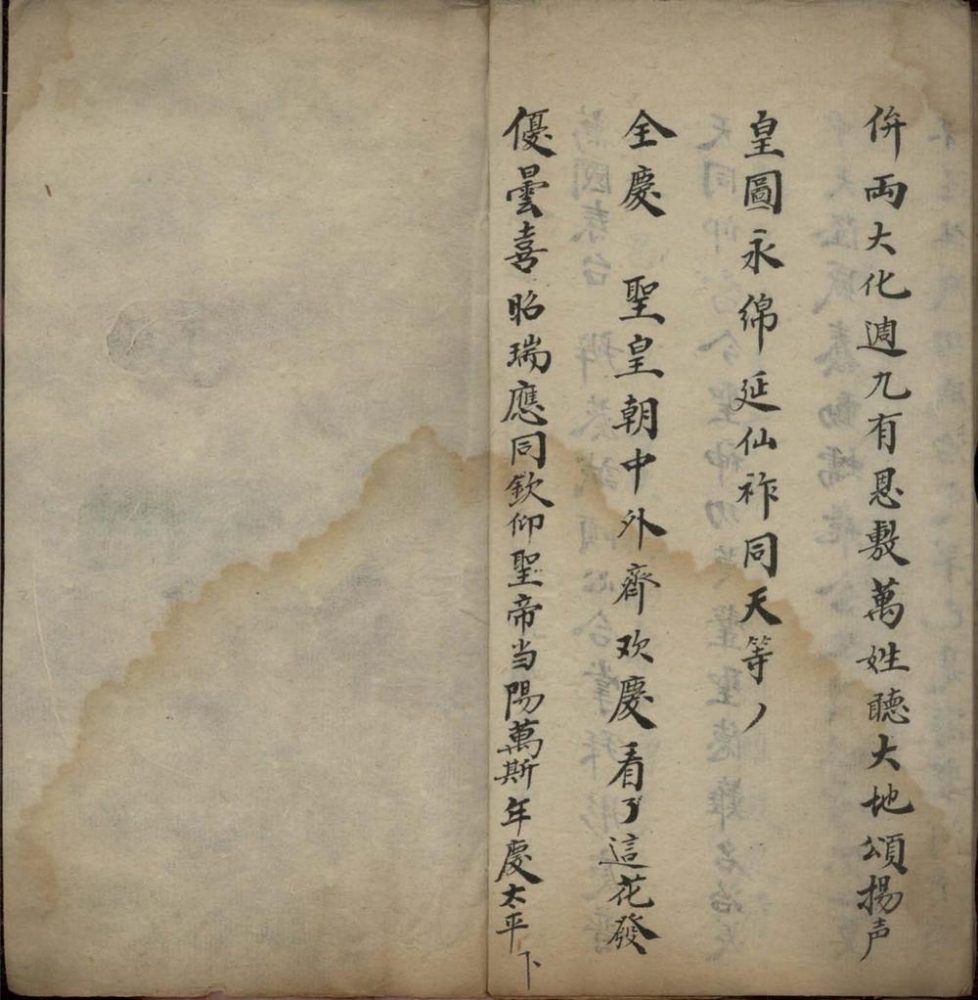 併両大化週九有恩敷萬姓聽大地頌揚声
皇圖永綿延仙祚同天等ノ
全慶　聖皇朝中外齊欢慶看了這花發
優曇喜昭瑞應同欽仰聖帝当陽萬斯年慶太平下